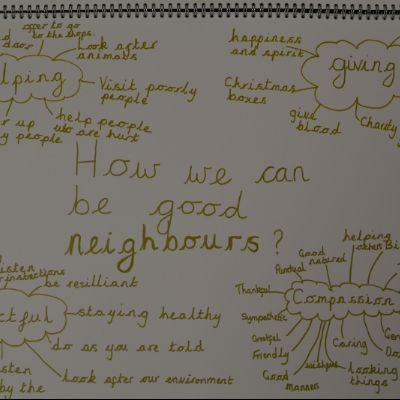 offer to go
to the shops.
door
look after
animals
lping
Visit poorly
people
r up
y people
help people
who are hurt
happiness
and spirit
giving
Christmas
boxes
give
blood
Charity
How we can
be good
neighbours?
isten
instructions
be resilliant
ctful
staying healthy
do as you are told
isten
by the
look after our environment
helping
others
Bi
Good
natured
Punctual
Thankful
Compassion
Sympathetic
Grateful
Friendly
Good
manners
Caring
looking
things